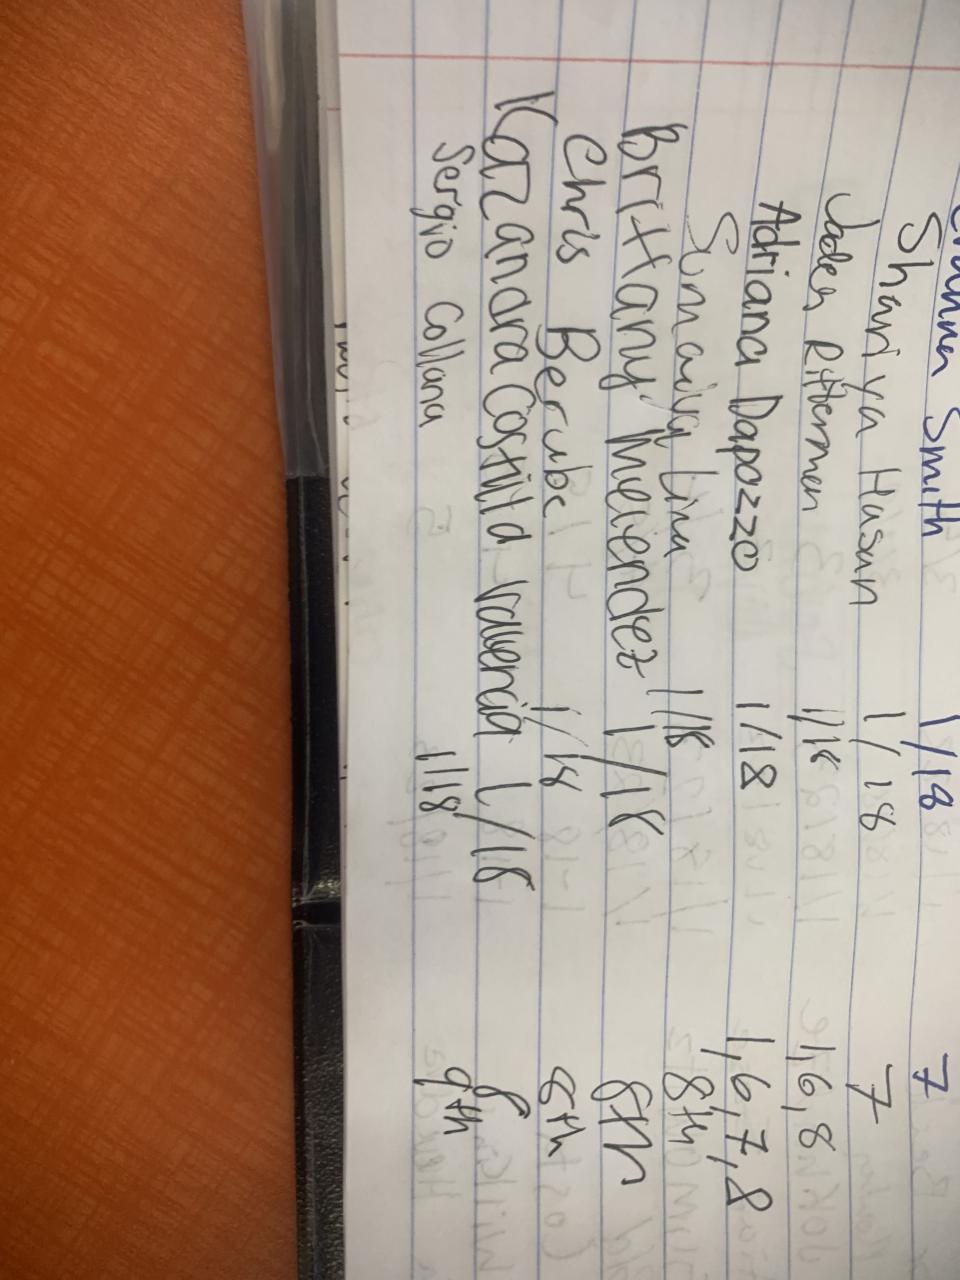 Smith 1/18 7
Shariya Hasan 1/18 7
Jaden Ritterman 1/18 1,6,8
Adriana Dapozzo 1/18 1,6,7,8
Sumaiya Lina 1/18 8th
Brittany Melendez 1/18 8th
Chris Berube 1/18 8th
Kazandra Costilla Valencia 1/18 8
Sergio Collana 1/18 9th